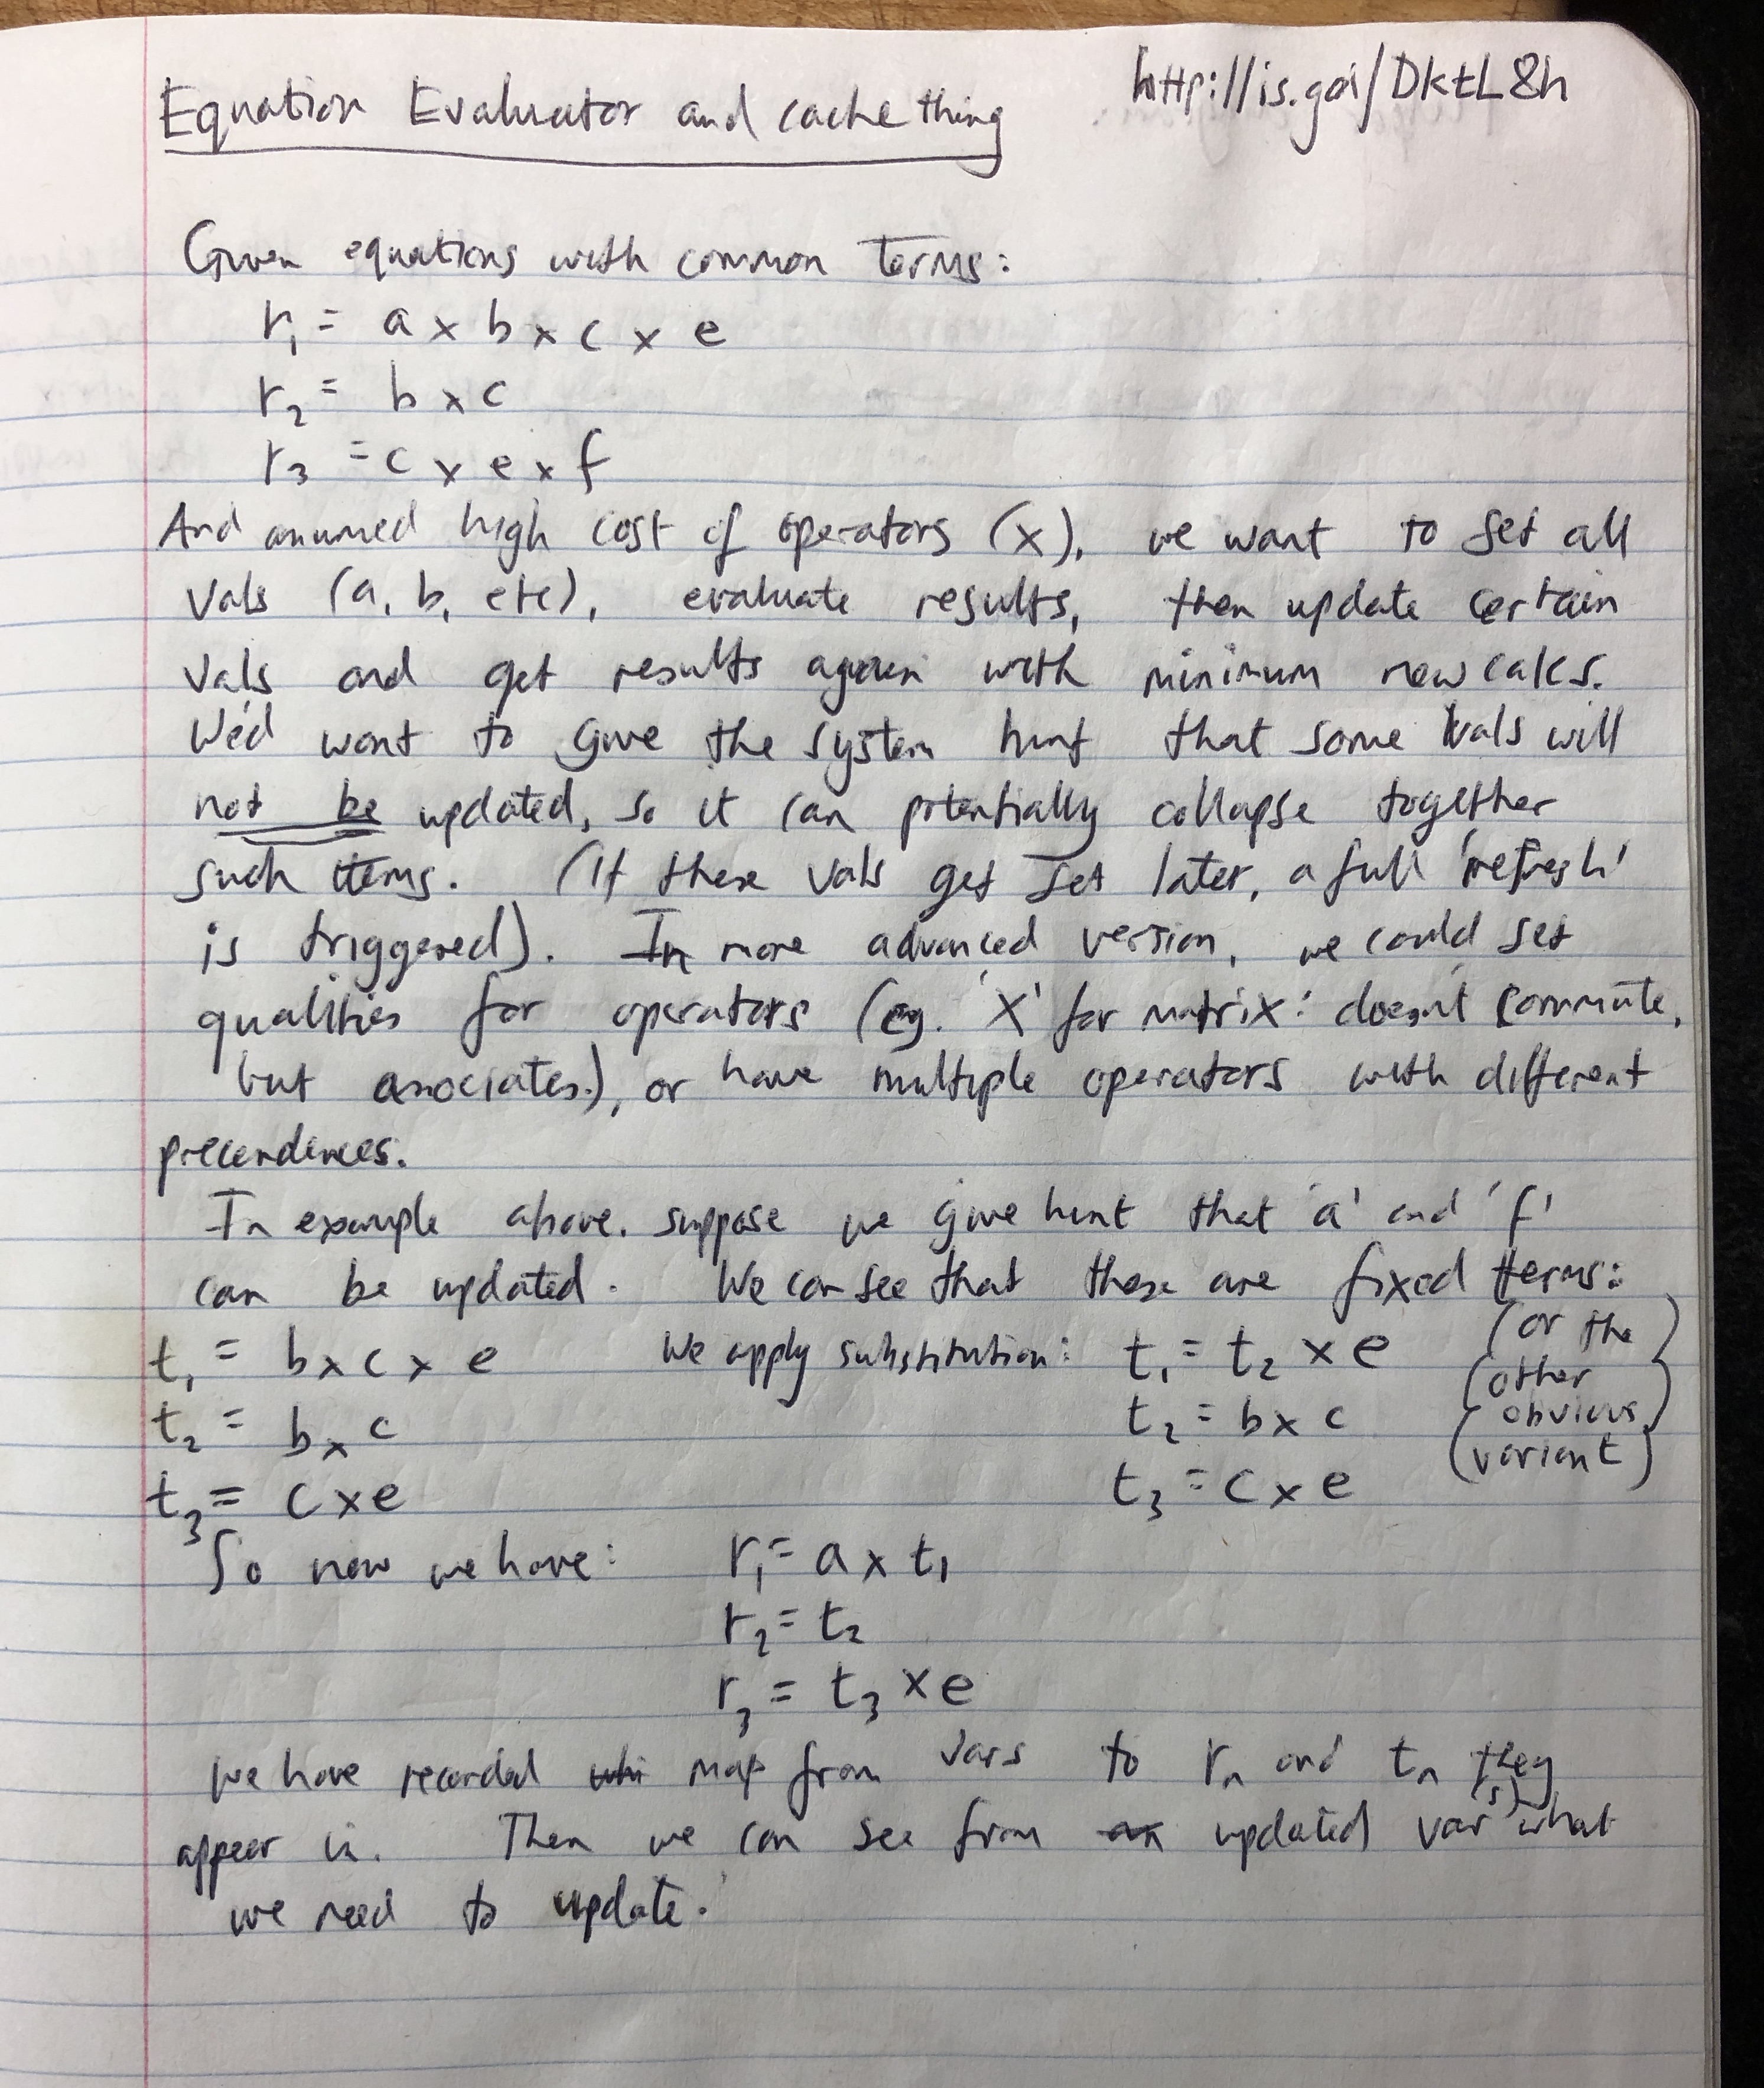 Equation Evaluator and cache thing
http://is.gd/DktL8h
Given equations with common terms:
r₁ = a × b × c × e
r₂ = b × c
r₃ = c × e × f
And assumed high cost of operators (x), we want to set all
vals (a, b, etc), evaluate results, then update certain
vals and get results again with minimum new calcs.
We'd want to give the system hint that some vals will
not be updated, so it can potentially collapse together
such items. (If these vals get set later, a full 'refresh'
is triggered). In more advanced version, we could set
qualities for operators (eg. 'X' for matrix: doesn't commute,
but associates.), or have multiple operators with different
precendences.
In example above, suppose we give hint that 'a' and 'f'
can be updated. We can see that these are fixed terms:
t₁ = b × c × e We apply substitution: t₁ = t₂ × e (or the
other
t₂ = b × c t₂ = b × c obvious
variant)
t₃ = c × e t₃ = c × e
So now we have: r₁ = a × t₁
r₂ = t₂
r₃ = t₃ × e
We have recorded map from vars to rₙ and tₙ they
appear in. Then we can see from updated var(s) what
we need to update.